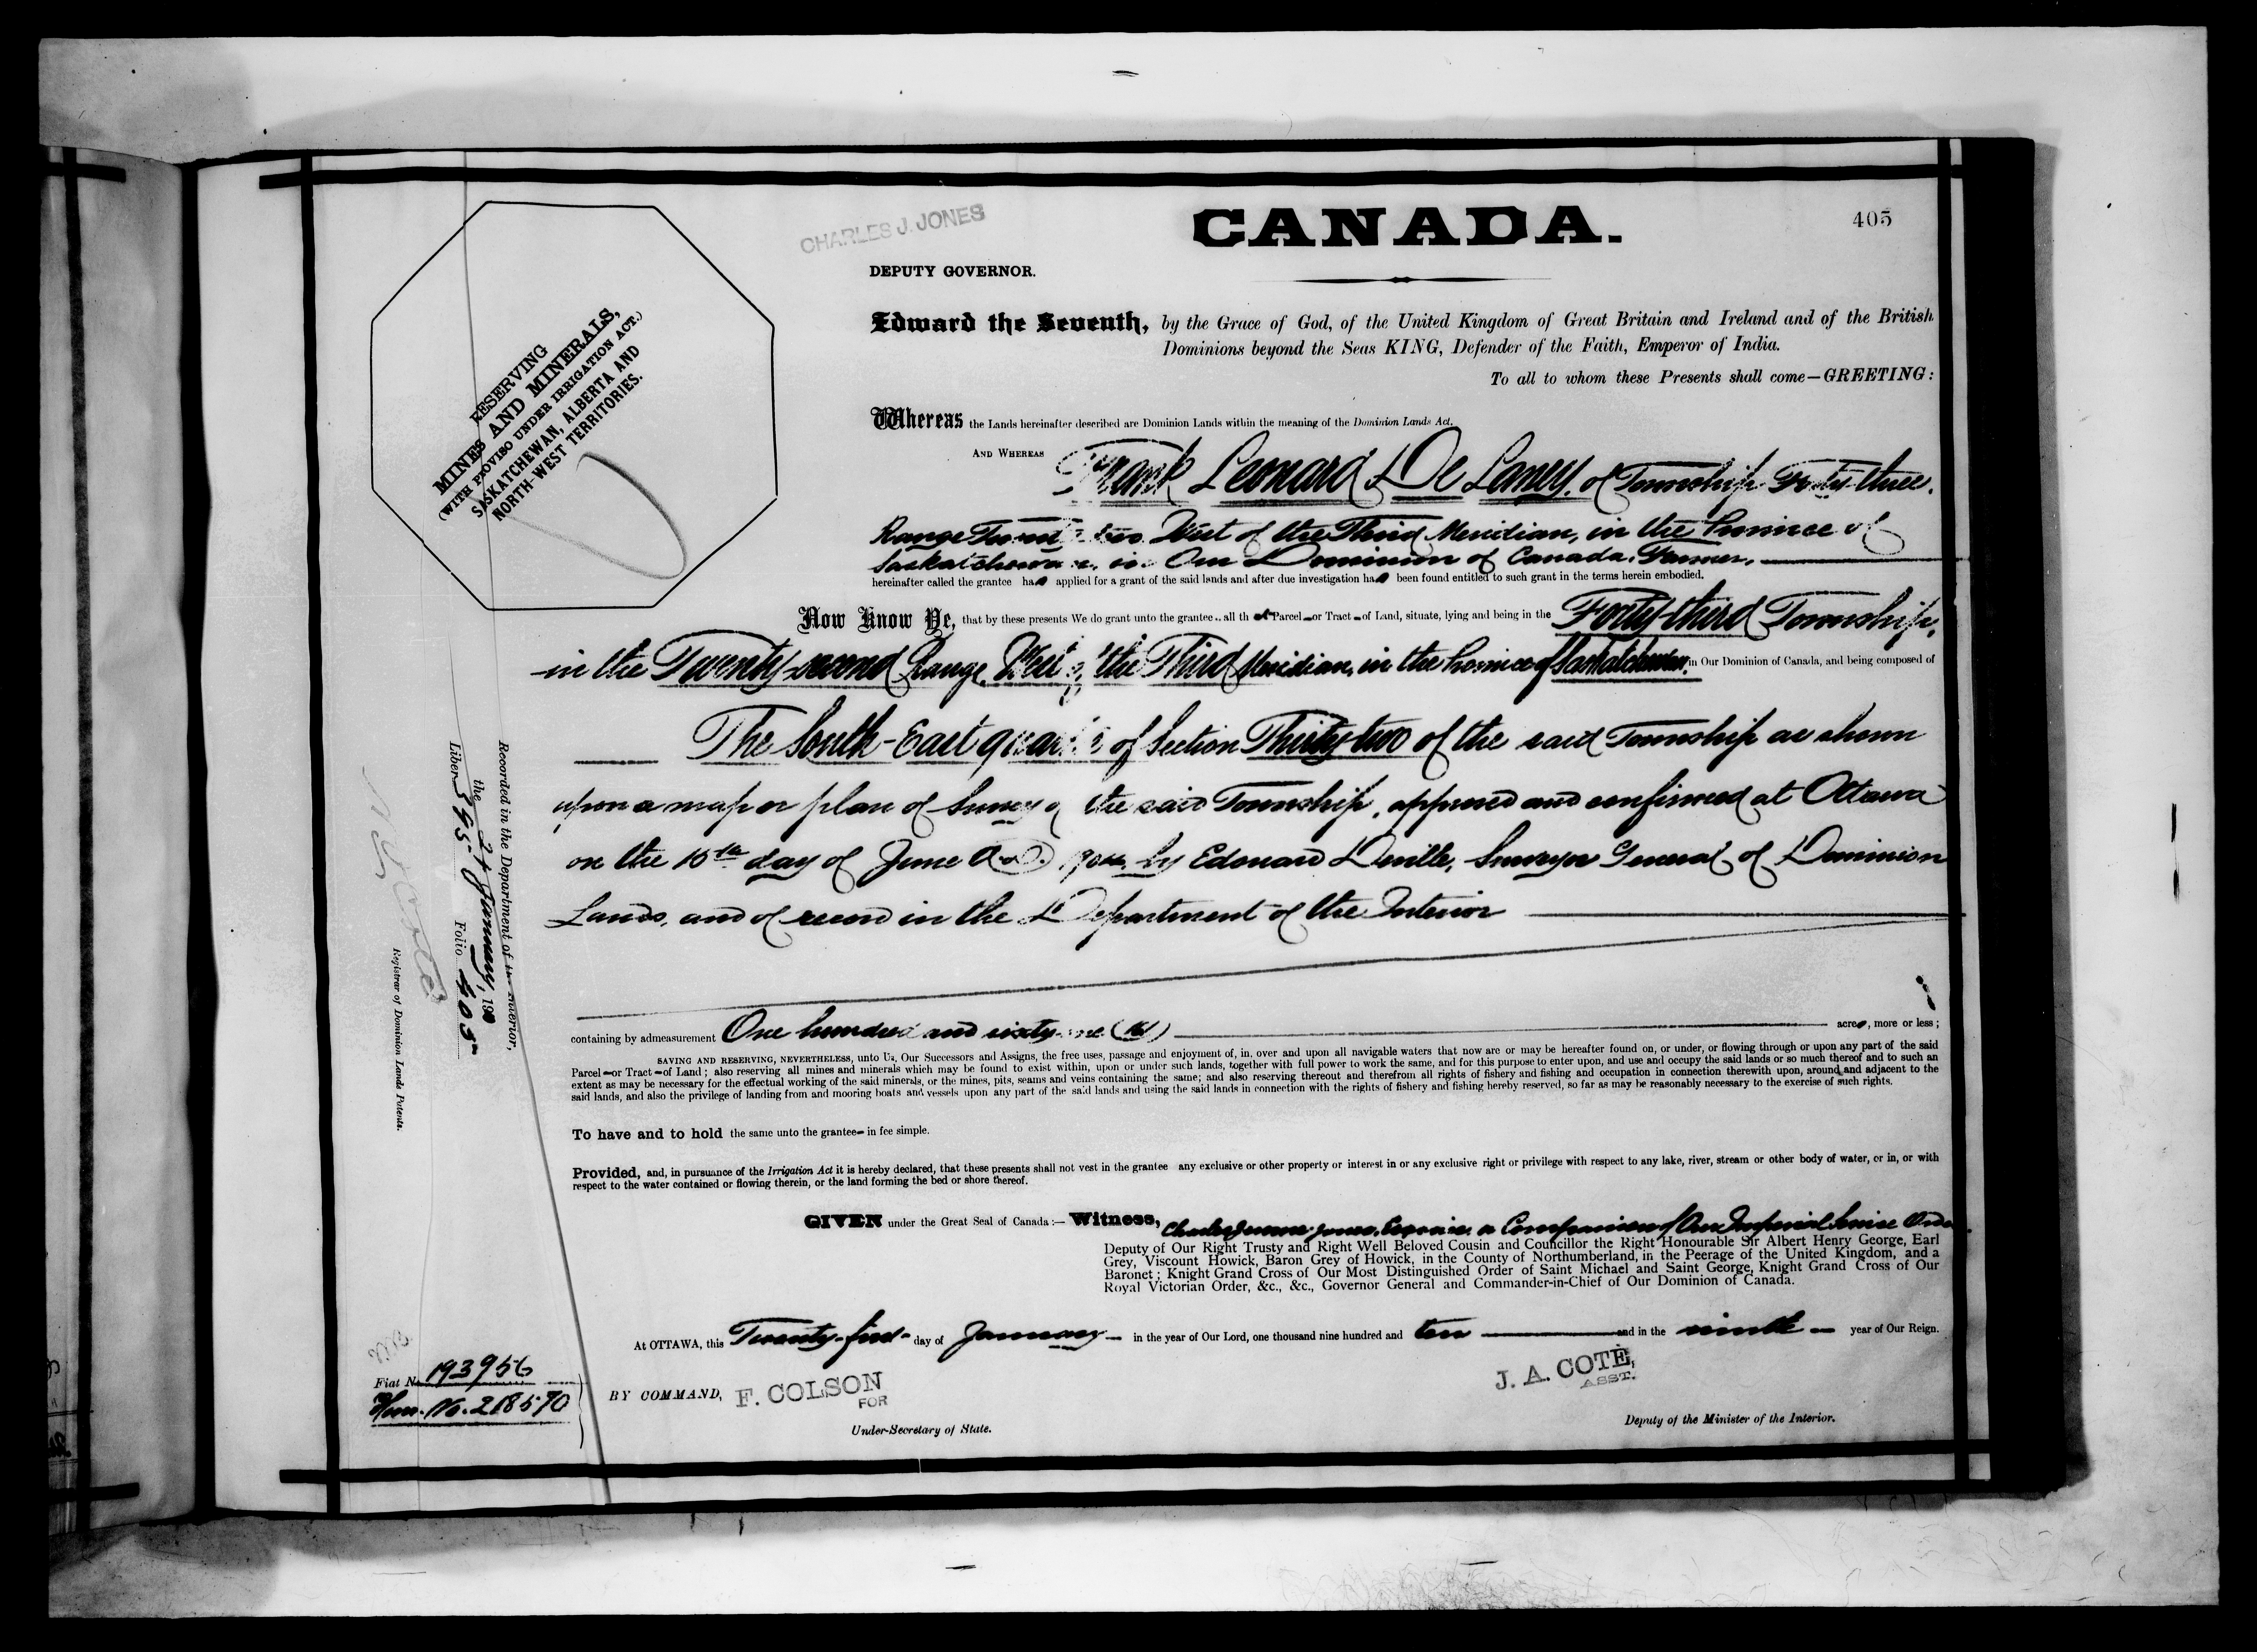 405
CHARLES J. JONES
CANADA.
DEPUTY GOVERNOR.
Edward the Seventh, by the Grace of God, of the United Kingdom of Great Britain and Ireland and of the British
Dominions beyond the Seas KING, Defender of the Faith, Emperor of India.
To all to whom these Presents shall come—GREETING:
RESERVING
MINES AND MINERALS,
(WITH PROVISO UNDER IRRIGATION ACT.)
SASKATCHEWAN, ALBERTA AND
NORTH-WEST TERRITORIES.
Whereas the Lands hereinafter described are Dominion Lands within the meaning of the Dominion Lands Act.
AND WHEREAS Frank Leonard De Laney, of Township Forty-three,
Range Twenty-two West of the Third Meridian, in the Province of
Saskatchewan, in Our Dominion of Canada, Farmer,
hereinafter called the grantee has applied for a grant of the said lands and after due investigation has been found entitled to such grant in the terms herein embodied.
Now Know Ye, that by these presents We do grant unto the grantee, all that Parcel or Tract of Land, situate, lying and being in the Forty-third Township,
in the Twenty-second Range, West of the Third Meridian, in the Province of Saskatchewan, in Our Dominion of Canada, and being composed of
The South-East quarter of Section Thirty-two of the said Township as shown
upon a map or plan of Survey of the said Township, approved and confirmed at Ottawa
on the 15th day of June A.D. by Edouard Deville, Surveyor General of Dominion
Lands, and of record in the Department of the Interior
containing by admeasurement One hundred and sixty-one (161) acres, more or less;
SAVING AND RESERVING, NEVERTHELESS, unto Us, Our Successors and Assigns, the free uses, passage and enjoyment of, in, over and upon all navigable waters that now are or may be hereafter found on, or under, or flowing through or upon any part of the said
Parcel or Tract of Land; also reserving all mines and minerals which may be found to exist within, upon or under such lands, together with full power to work the same, and for this purpose to enter upon, and use and occupy the said lands or so much thereof and to such an
extent as may be necessary for the effectual working of the said minerals, or the mines, pits, seams and veins containing the same; and also reserving thereout and therefrom all rights of fishery and fishing and occupation in connection therewith upon, around and adjacent to the
said lands, and also the privilege of landing from and mooring boats and vessels upon any part of the said lands and using the said lands in connection with the rights of fishery and fishing hereby reserved, so far as may be reasonably necessary to the exercise of such rights.
To have and to hold the same unto the grantee in fee simple.
Provided, and, in pursuance of the Irrigation Act it is hereby declared, that these presents shall not vest in the grantee any exclusive or other property or interest in or any exclusive right or privilege with respect to any lake, river, stream or other body of water, or in, or with
respect to the water contained or flowing therein, or the land forming the bed or shore thereof.
GIVEN under the Great Seal of Canada:— Witness, Charles Jerome Jones, Esquire, a Companion of Our Imperial Service Order
Deputy of Our Right Trusty and Right Well Beloved Cousin and Councillor the Right Honourable Sir Albert Henry George, Earl
Grey, Viscount Howick, Baron Grey of Howick, in the County of Northumberland, in the Peerage of the United Kingdom, and a
Baronet; Knight Grand Cross of Our Most Distinguished Order of Saint Michael and Saint George, Knight Grand Cross of Our
Royal Victorian Order, &c., &c., Governor General and Commander-in-Chief of Our Dominion of Canada.
At OTTAWA, this Twenty-first day of January in the year of Our Lord, one thousand nine hundred and ten and in the ninth year of Our Reign.
BY COMMAND, F. COLSON
FOR
Under-Secretary of State.
J. A. COTE,
ASST.
Deputy of the Minister of the Interior.
Recorded in the Department of the Interior,
the 24 January, 19
Liber 395 Folio 405
N. O. Coté
Registrar of Dominion Lands Patents.
Fiat No. 193956
Hom. No. 218570